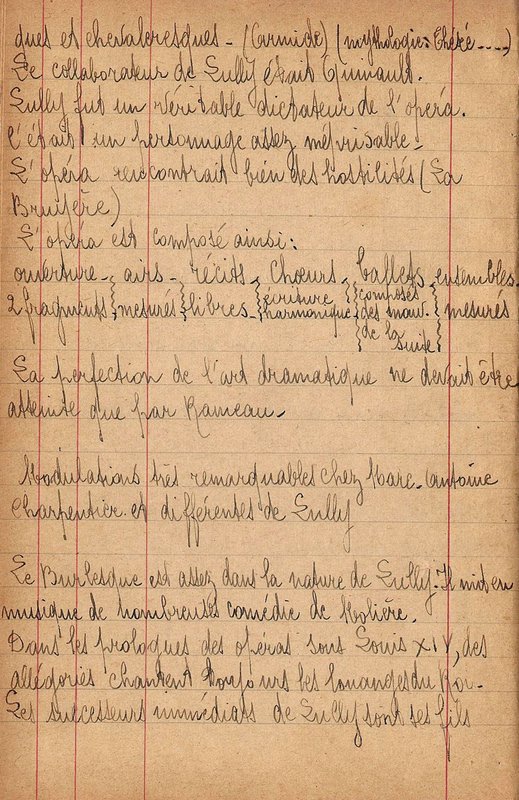 ques et chevaleresques - (Armide) (mythologie: Thésé ....)
Le collaborateur de Lully était Quinault.
Lully fut un véritable dictateur de l'opéra.
C'était un personnage assez méprisable -
L'opéra rencontrait bien des hostilités (La
Bruyère)
L'opéra est composé ainsi:
ouverture - airs - récits - Chœurs - ballets - ensembles.
2 fragments mesurés libres - écriture harmonique composés des mouv. de la suite mesurés
La perfection de l'art dramatique ne devait être
atteinte que par Rameau -
Modulations très remarquables chez Marc-Antoine
Charpentier et différentes de Lully
Le Burlesque est assez dans la nature de Lully. Il mit en
musique de nombreuses comédie de Molière.
Dans les prologues des opéras sous Louis XIV, des
allégories chantent toujours les louanges du Roi -
Les successeurs immédiats de Lully sont ses fils